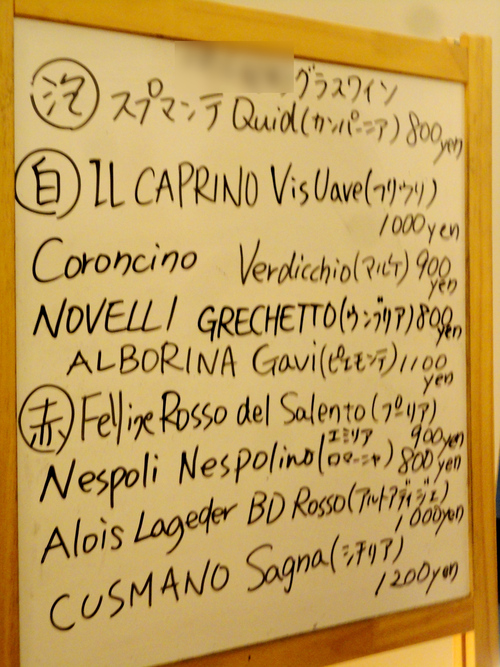 グラスワイン
泡 スプマンテ Quid(カンパーニア) 800yen
白 IL CAPRINO Vis Uave(フリウリ)
1000yen
Coroncino Verdicchio(マルケ) 900
yen
NOVELLI GRECHETTO(ウンブリア) 800yen
ALBORINA Gavi(ピエモンテ) 1100
yen
赤 Felline Rosso del Salento(プーリア)
900yen
Nespoli Nespolino(エミリア ロマーニャ) 800yen
Alois Lageder BD Rosso(アルトアディジェ)
1000yen
CUSMANO Sagna(シチリア)
1200yen